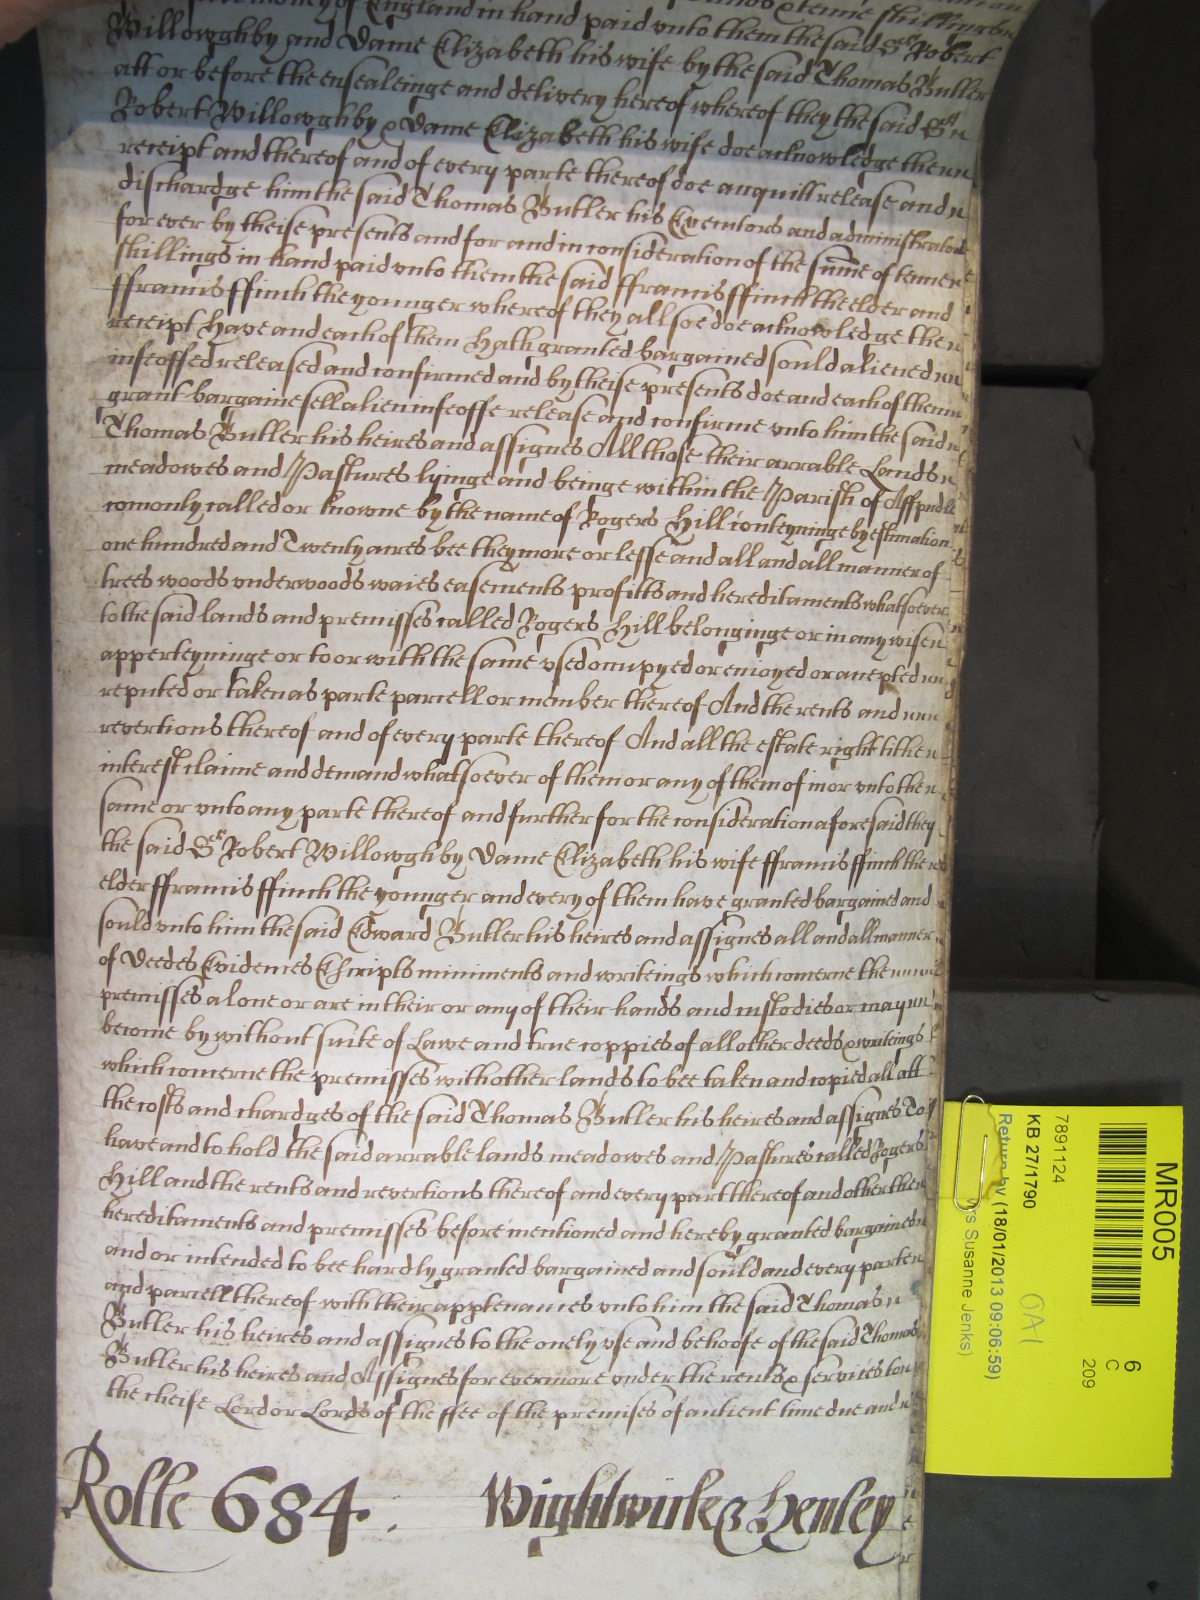 money of England in hand paid vnto them the said Sr Robert
Willowghby and Dame Elizabeth his wife by the said Thomas Butler
att or before the ensealeinge and delivery hereof whereof they the said Sr
Robert Willowghby & Dame Elizabeth his wife doe acknowledge the
receipt and thereof and of every parte thereof doe acquitt release and
dischardge him the said Thomas Butler his Executors and administrators
for ever by theise presents and for and in consideration of the sume of tenne
shillings in hand paid vnto them the said ffrancis ffinch the elder and
ffrancis ffinch the younger whereof they allsoe doe acknowledge the
receipt Have and each of them Hath granted bargained sould aliened
infeoffed released and confirmed and by theise presents doe and each of them
grant bargaine sell alien infeoffe release and confirme vnto him the said
Thomas Butler his heires and assignes All those their arrable Lands
meadowes and Pastures lyinge and beinge within the Parish of Affpudle
comonly called or knowne by the name of Rogers Hill conteyninge by estimation
one hundred and Twenty acres bee they more or lesse and all and all manner of
trees woods vnderwoods waies easements profitts and hereditaments whatsoever
to the said lands and premisses called Rogers Hill belonginge or in any wise
apperteyninge or to or with the same vsed occupyed or enioyed or accepted
reputed or taken as parte parcell or member thereof And the rents and
revertions thereof and of every parte thereof And all the estate right title
interest claime and demand whatsoever of them or any of them of in or vnto the
same or vnto any parte thereof and further for the consideration aforesaid they
the said Sr Robert Willowghby Dame Elizabeth his wife ffrancis ffinch the
elder ffrancis ffinch the younger and every of them have granted bargained and
sould vnto him the said Edward Butler his heires and assignes all and all manner
of Deedes Evidences Escripts miniments and writeings which concerne the
premisses alone or are in their or any of their hands and custodies or may
become by without suite of Lawe and true coppies of all other deeds & writeings
which concerne the premisses with other lands to bee taken and copied all att
the costs and chardges of the said Thomas Butler his heires and assignes To
have and to hold the said arrable lands meadowes and Pastures called Rogers
Hill and the rents and revertions thereof and every part thereof and other the
hereditaments and premisses before mentioned and hereby granted bargained
and or intended to bee hardly granted bargained and sould and every parte
and parcell thereof with their apptenances vnto him the said Thomas
Butler his heires and assignes to the onely vse and behoofe of the said Thomas
Butler his heires and Assignes for evermore vnder the rents & services to
the cheife Lord or Lords of the ffee of the premises of antient time due and
Rolle 684. Wightwicke & Henley
MR005
6
C
209
7891124
KB 27/1790
OA1
Return by (18/01/2013 09:06:59)
Mrs Susanne Jenks)